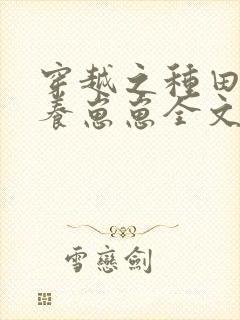 穿越之種田
養崽崽全文
雪戀劍